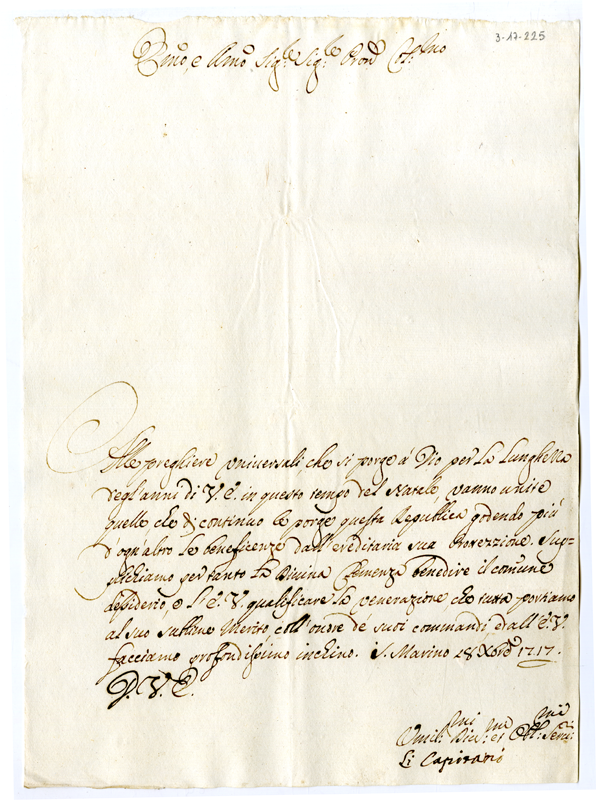 3-17-225
Em͞o, e Rm͞o Sig.re Sig.re Pron͞e Col.mo
Alle preghiere universali, che si porge à Dio per la Lunghezza
degl'anni di V. E. in questo tempo del Natale, vanno unite
quelle che di continuo le porge questa Republica godendo più
d'ogn'altro le beneficenze dall'ereditaria sua Protezzione. Sup-
plichiamo per tanto La Divina Clemenza benedire il comune
desiderio, e l'E. V. qualificare la venerazione, che tutta portiamo
al suo sublime Merito, coll'onore de suoi commandi, e dall'E. V.
facciamo profondissimo inchino. S. Marino 18 Xbre 1717.
D. V. E.
Umil.mi Div.mi et Obl.mi Serv.ri
Li Capitani